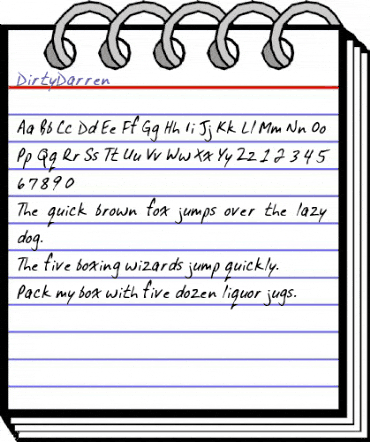 DirtyDarren
Aa Bb Cc Dd Ee Ff Gg Hh Ii Jj Kk Ll Mm Nn Oo
Pp Qq Rr Ss Tt Uu Vv Ww Xx Yy Zz 1 2 3 4 5
6 7 8 9 0
The quick brown fox jumps over the lazy
dog.
The five boxing wizards jump quickly.
Pack my box with five dozen liquor jugs.